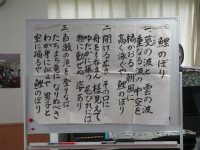 鯉のぼり
一、甍の波と 雲の波
重なる波の 中空を
橘かおる 朝風に
高く泳ぐや 鯉のぼり
二、開ける広き その口に
舟をも呑まん 様見えて
ゆたかに振う 尾びれには
物に動ぜぬ 姿あり
三、百瀬の滝を 登りなば
たちまち竜に なりぬべき
わが身に似よや 男子と
空に踊るや 鯉のぼり